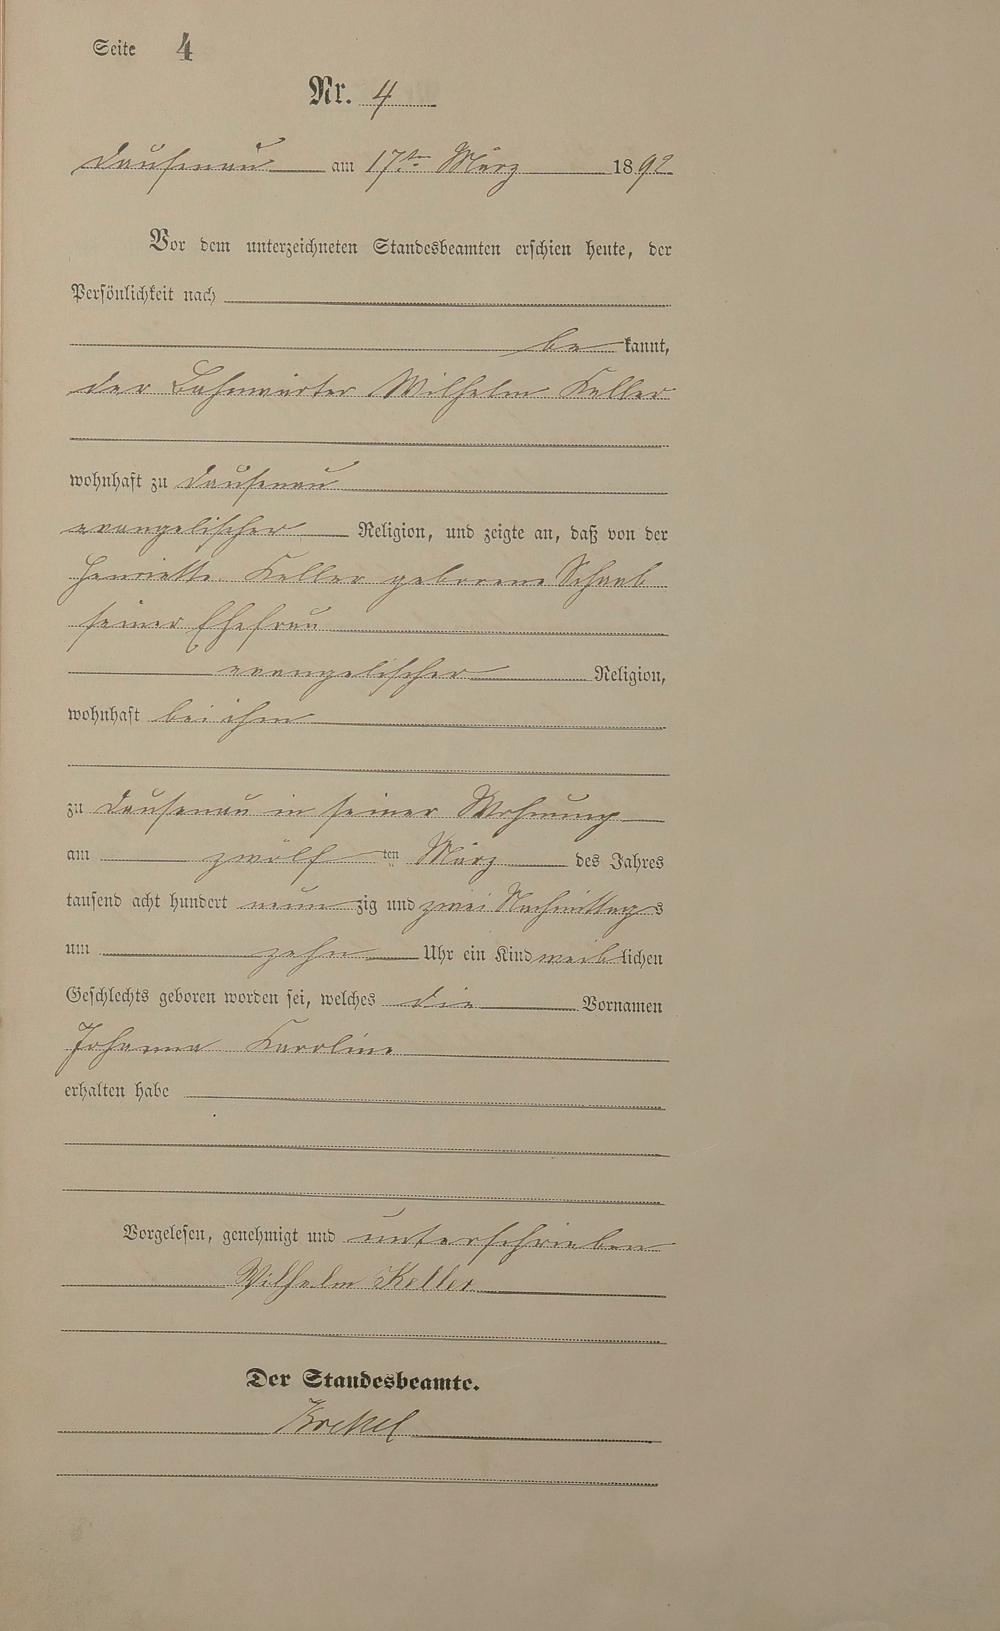 Seite 4
Nr. 4
Dausenau am 17ten März 1892
Vor dem unterzeichneten Standesbeamten erschien heute, der
Persönlichkeit nach
be kannt,
der Bahnwärter Wilhelm Keller
wohnhaft zu Dausenau
evangelischer Religion, und zeigte an, daß von der
Henriette Keller geborene Schaub
seiner Ehefrau
evangelischer Religion,
wohnhaft bei ihm
zu Dausenau in seiner Wohnung
am zwölf ten März des Jahres
tausend acht hundert neun zig und zwei Nachmittags
um zehn Uhr ein Kind weiblichen
Geschlechts geboren worden sei, welches die Vornamen
Johanna Karoline
erhalten habe
Vorgelesen, genehmigt und unterschrieben
Wilhelm Keller
Der Standesbeamte.